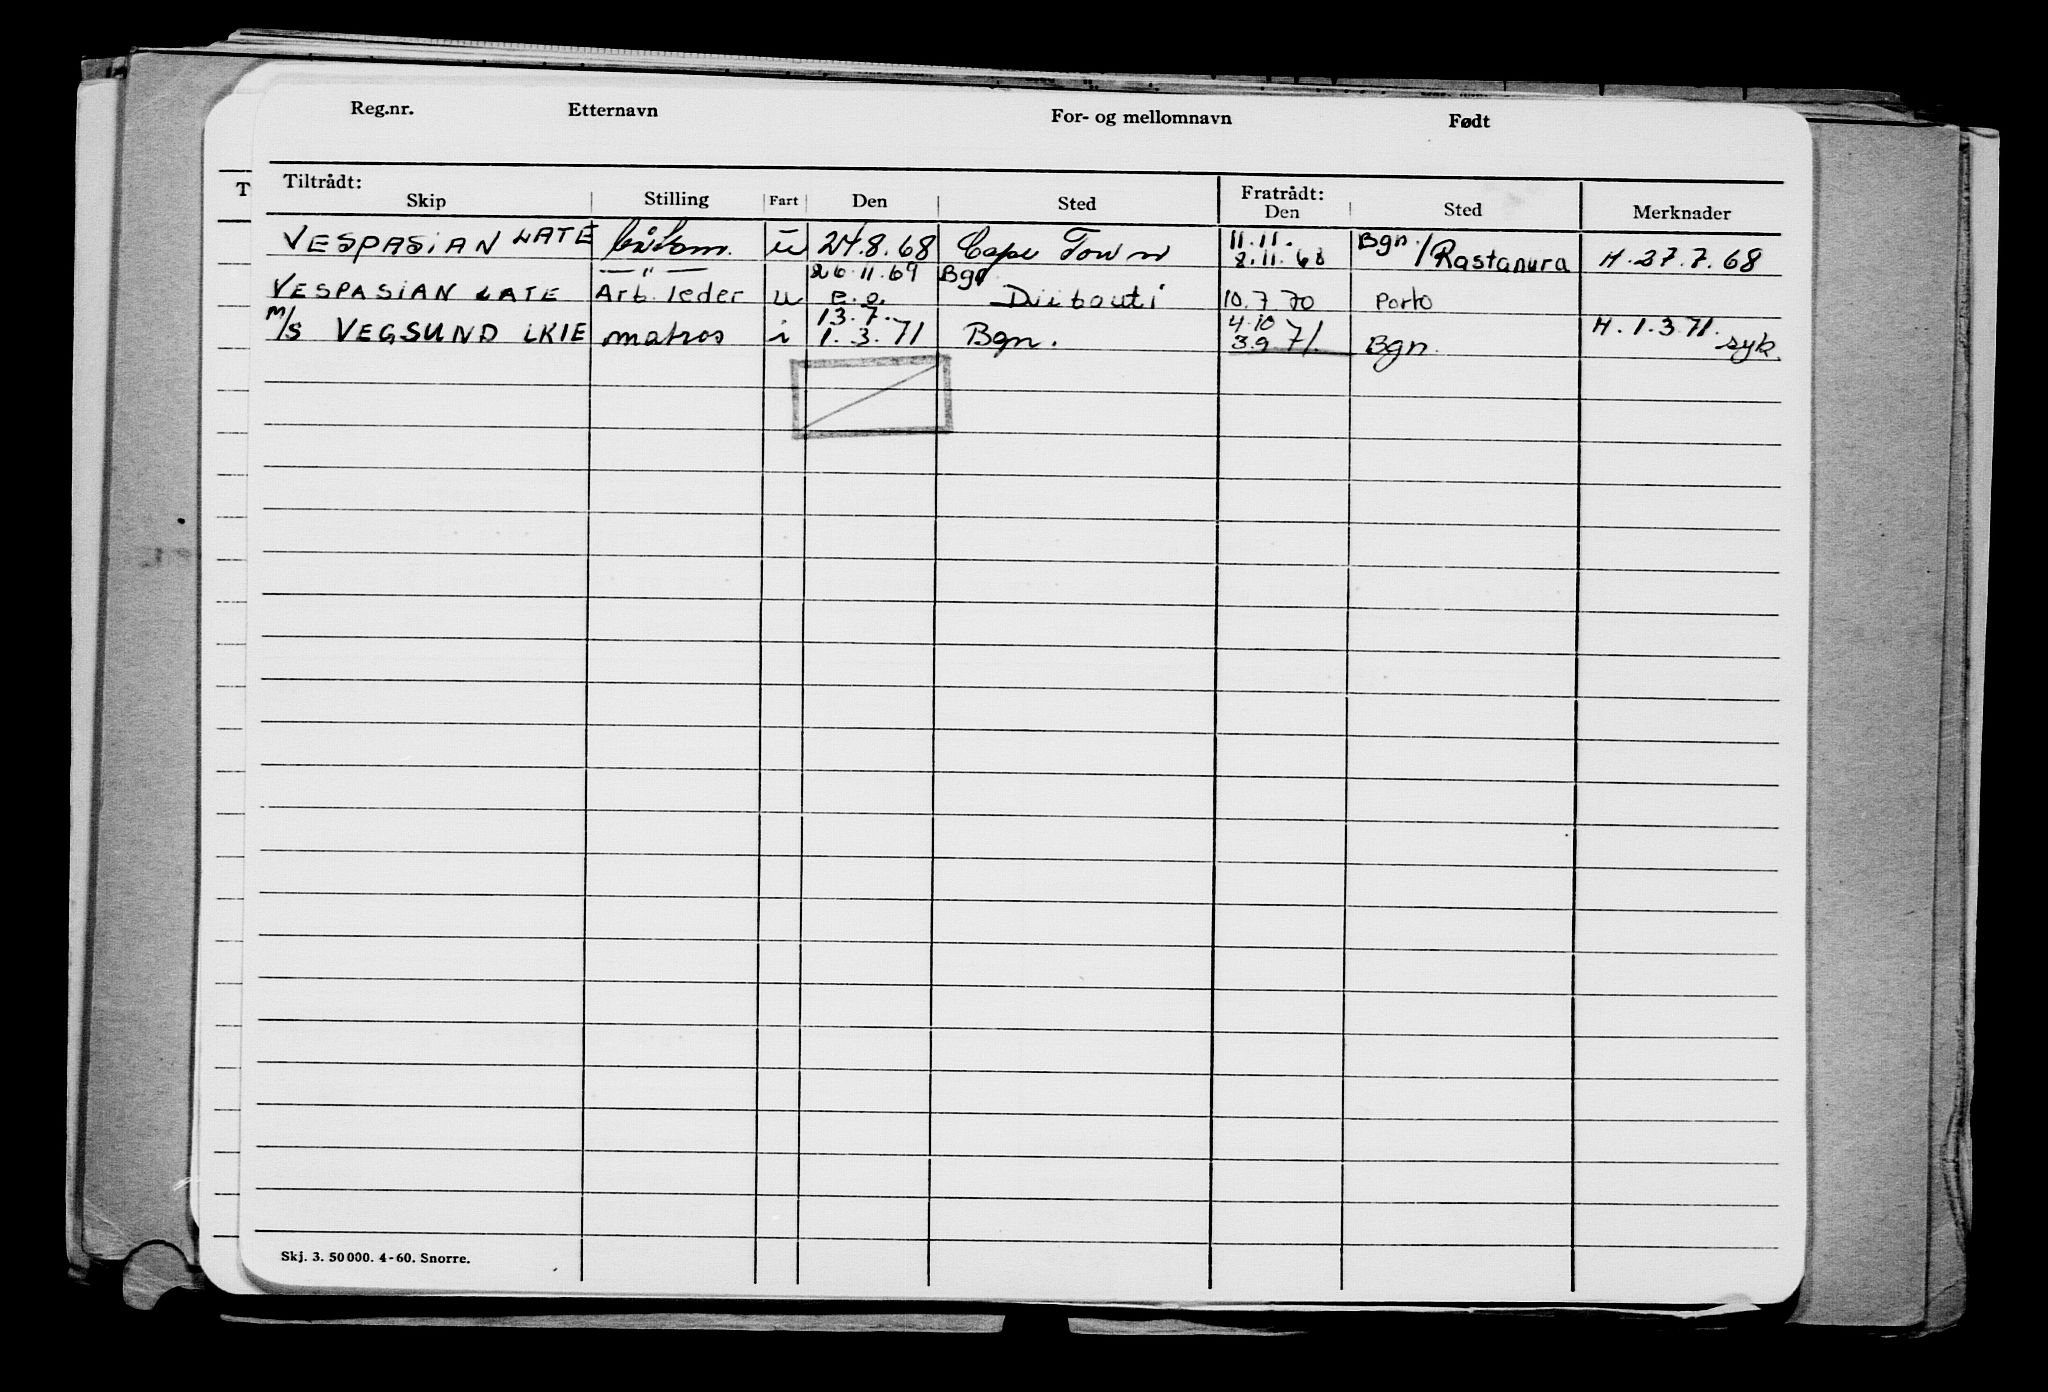 Reg.nr. Etternavn For- og mellomnavn Født
T Tiltrådt: Fratrådt:
Skip Stilling Fart Den Sted Den Sted Merknader
VESPASIAN LATE båtsm. u 24.8.68 Cape Town 11.11. 8.11.68 Bgn./Rastanura H.27.7.68
— " — 26.11.69 Bgn
VESPASIAN LATE Arb.leder u e.o. Djibouti 10.7.70 Porto
M/S VEGSUND LKIE matros i 13.7. 1.3.71 Bgn. 4.10 3.9 71. Bgn. H.1.3.71. syk.
Skj. 3. 50 000. 4-60. Snorre.